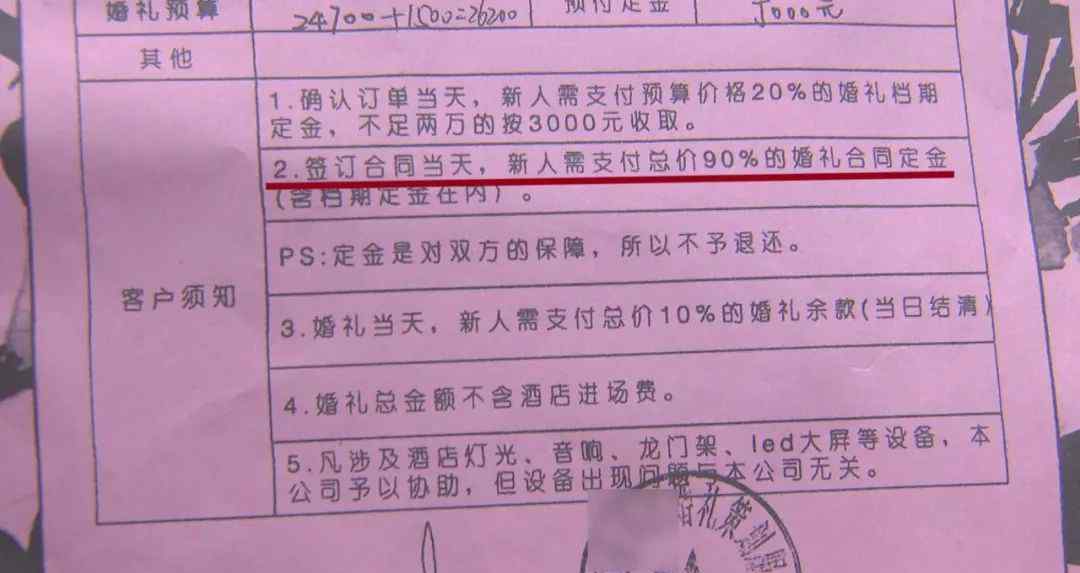 婚礼预算 24700+1500=26200 预付定金 5000元
其他
客户须知
1.确认订单当天，新人需支付预算价格20%的婚礼档期
定金，不足两万的按3000元收取。
2.签订合同当天，新人需支付总价90%的婚礼合同定金
(含档期定金在内)。
PS:定金是对双方的保障，所以不予退还。
3.婚礼当天，新人需支付总价10%的婚礼余款(当日结清)
4.婚礼总金额不含酒店进场费。
5.凡涉及酒店灯光、音响、龙门架、led大屏等设备，本
公司予以协助，但设备出现问题与本公司无关。
婚礼策划